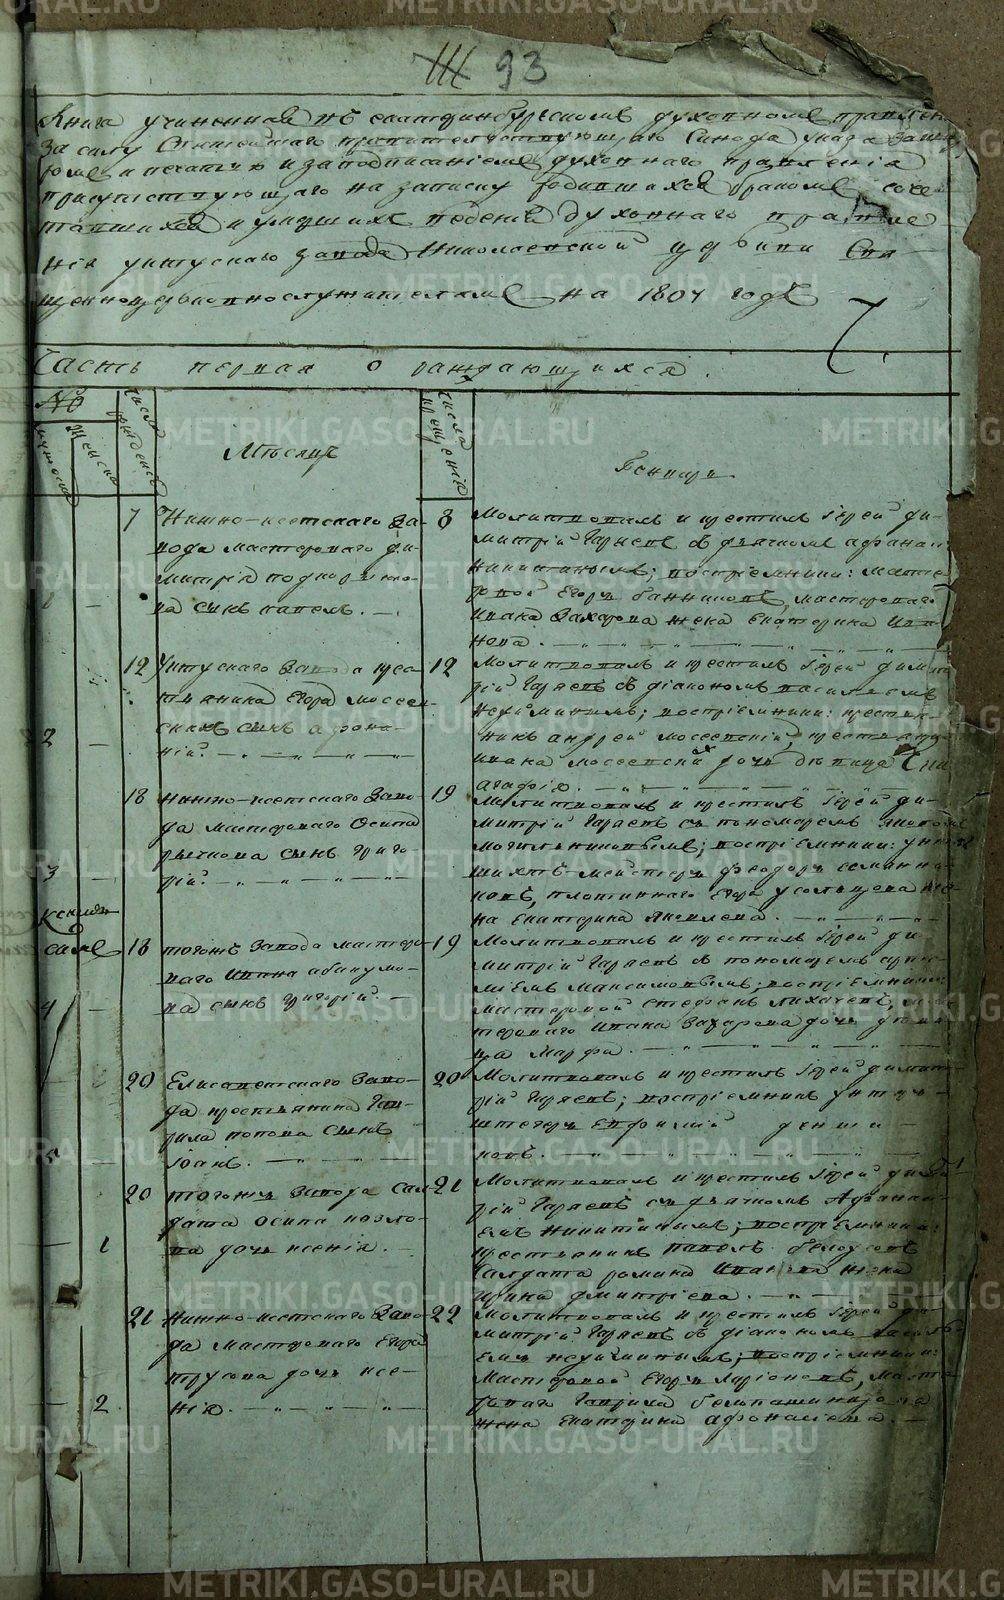 93
Книга учиненная въ екатеринбургскомъ духовномъ правлен
за силу Святейшаго правительствующаго Синода указа за
роме и печатью и заподписаниемъ духовнаго правления
присутствующаго на записку родившихся бракомъ соче
тавшихся и умерших ведения духовнаго правле
ния уктусскаго завода Николаевской церкви Свя
щенноцерковнослужителями на 1807 годъ
Часть первая о раждающихся.
№
мужеска
женска
Числа рождения
Месяцъ
числа крещения
Генварь
7 Нижно-исетскаго за-
вода мастероваго ди-
митрия
ва сынъ павелъ.
8 Молитвовалъ и крестилъ иерей ди-
митрий Гаряевъ съ дьячкомъ афанас
никитинымъ; восприемники: масте
ровой Егоръ банниковъ, мастероваго
ивана Захарова жена Екатерина Ива
нова.
1 -
12 Уктусскаго завода крес
тьянина Егора
сынъ афона-
сий.
12 Молитвовалъ и крестилъ иерей димит
рий Гаряевъ съ диакономъ василиемъ
неуйминымъ; восприемники: крестья-
нинъ андрей
ивана дочь девица
агафия.
2 -
18 нижно-исетскаго заво-
да мастероваго Осипа
сынъ григо-
рий.
19 Молитвовалъ и крестилъ иерей ди-
митрий Гаряевъ съ пономаремъ яковомъ
восприемники: унтеръ
шихтъ-мейстеръ феодоръ
плотиннаго Егора усольцева же
на екатерина яковлева.
3 -
18 тогожъ завода мастеро-
ваго Ивана абакумо-
ва сынъ григорий.
19 Молитвовалъ и крестилъ иерей ди-
митрий Гаряевъ съ пономаремъ
максимовымъ; восприемники:
мастеровой стефанъ лихачевъ, мас
тероваго ивана Захарова дочь деви
ца марфа.
4 -
20 Елисаветскаго заво-
да крестьянина Гав-
рила попова сынъ
иоанъ.
20 Молитвовалъ и крестилъ иерей димит
рий Гаряевъ; восприемникъ унтеръ-
штегеръ Евфимий
новъ.
5 -
20 тогожъ завода сал
дата осипа козло-
ва дочь ксения.
21 Молитвовалъ и крестилъ иерей дими
рий Гаряевъ съ дьячкомъ Афанаси
емъ никитинымъ; восприемники:
крестьянинъ павелъ белоусовъ
салдата романа иванова жена
ирина дмитриева.
- 1
21 нижно-исетскаго заво-
да мастероваго Егора
трусова дочь ксе-
ния.
22 молитвовалъ и крестилъ иерей ди-
митрий Гаряевъ съ диакономъ василь-
емъ неуйминымъ; восприемники:
мастеровой Егоръ ларионовъ, масте
роваго Гаврила
жена екатерина афонасьева.
- 2
METRIKI.GASO-URAL.RU